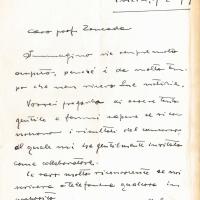 caro prof. Zoncada
Immagino sia sempre molto
perché è da molto tem-
po che non ricevo sue notizie.
Vorrei pregarla di essere tanto
gentile e farmi sapere se si co-
noscono i risultati del concorso
al quale mi ha gentilmente invitato
come collaboratore.
Le sarò molto riconoscente se mi
scriverà o telefonerà qualcosa in